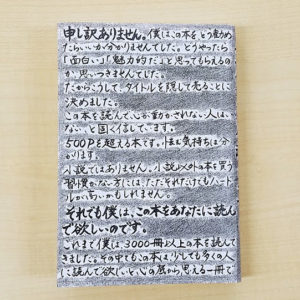 申し訳ありません。僕はこの本をどう勧め
たらいいか分かりませんでした。どうやったら
「面白い」「魅力的だ」と思ってもらえるの
か、思いつきませんでした。
だから、こうして、タイトルを隠して売ることに
決めました。
この本を読んで心が動かされない人はい
ない、と固く信じています。
500Pを超える本です。怯む気持ちは分
かります。
小説ではありません。小説以外の本を買う
習慣がない方には、ただそれだけでもハードル
が高いかもしれません。
それでも僕は、この本をあなたに読ん
で欲しいのです。
これまで僕は3000冊以上の本を読んで
きました。その中でもこの本は、少しでも多くの人
に読んで欲しいと心の底から思える一冊で